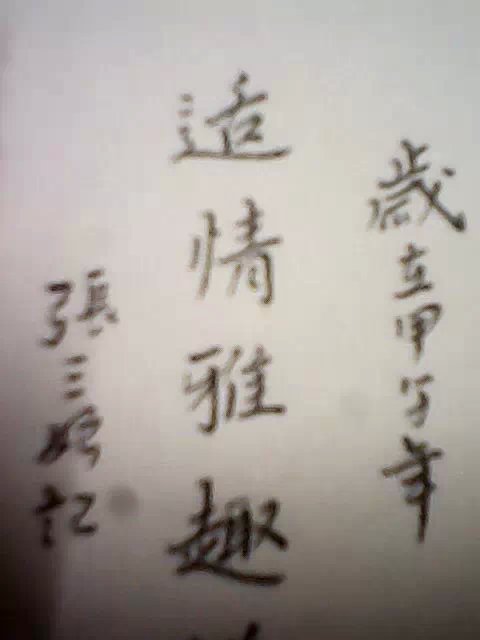 歲在甲子年
适情雅趣
張三
記